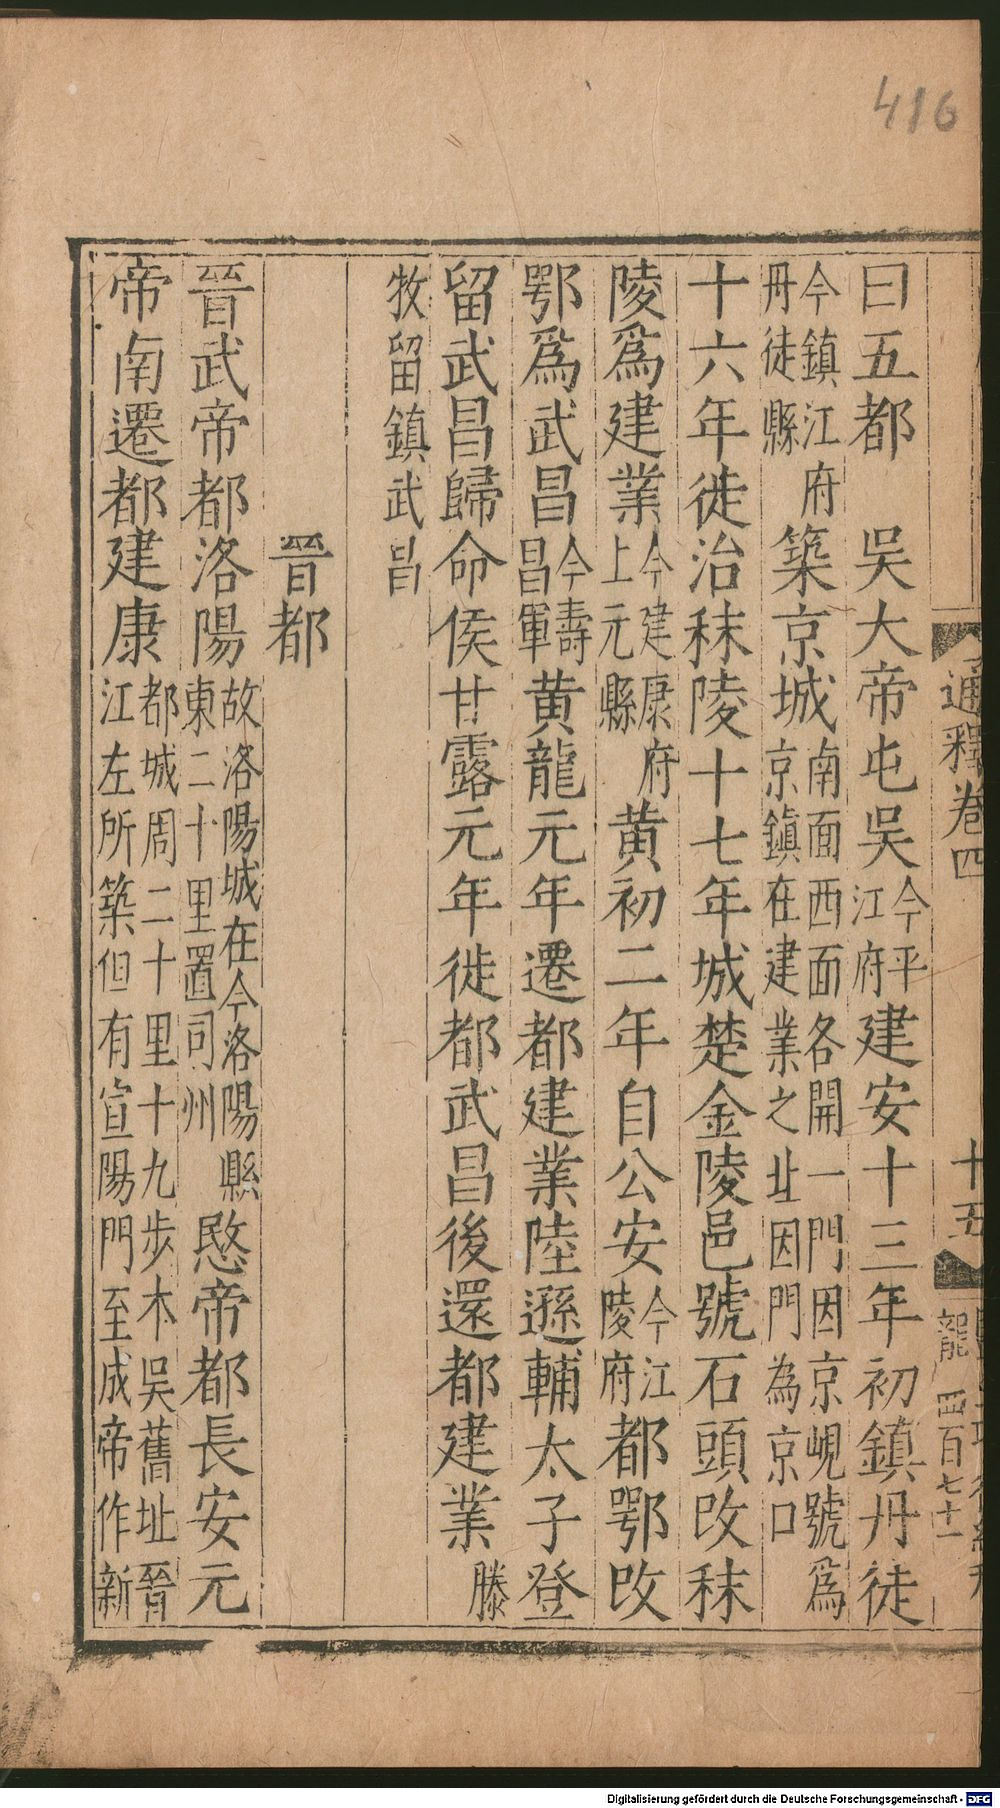 416
通釋卷四
十五
四百七十一
曰五都　吳大帝屯吳今平江府建安十三年初鎮丹徒
今鎮江府丹徒縣築京城南面西面各開一門因京峴號爲京鎮在建業之北因門為京口
十六年徙治秣陵十七年城楚金陵邑號石頭改秣
陵爲建業今建康府上元縣黃初二年自公安今江陵府都鄂改
鄂爲武昌今壽昌軍黃龍元年遷都建業陸遜輔太子登
留武昌歸命侯甘露元年徙都武昌後還都建業滕
牧留鎮武昌
晉都
晉武帝都洛陽故洛陽城在今洛陽縣東二十里置司州愍帝都長安元
帝南遷都建康都城周二十里十九步本吳舊址晉江左所築但有宣陽門至成帝作新
Digitalisierung gefördert durch die Deutsche Forschungsgemeinschaft - DFG